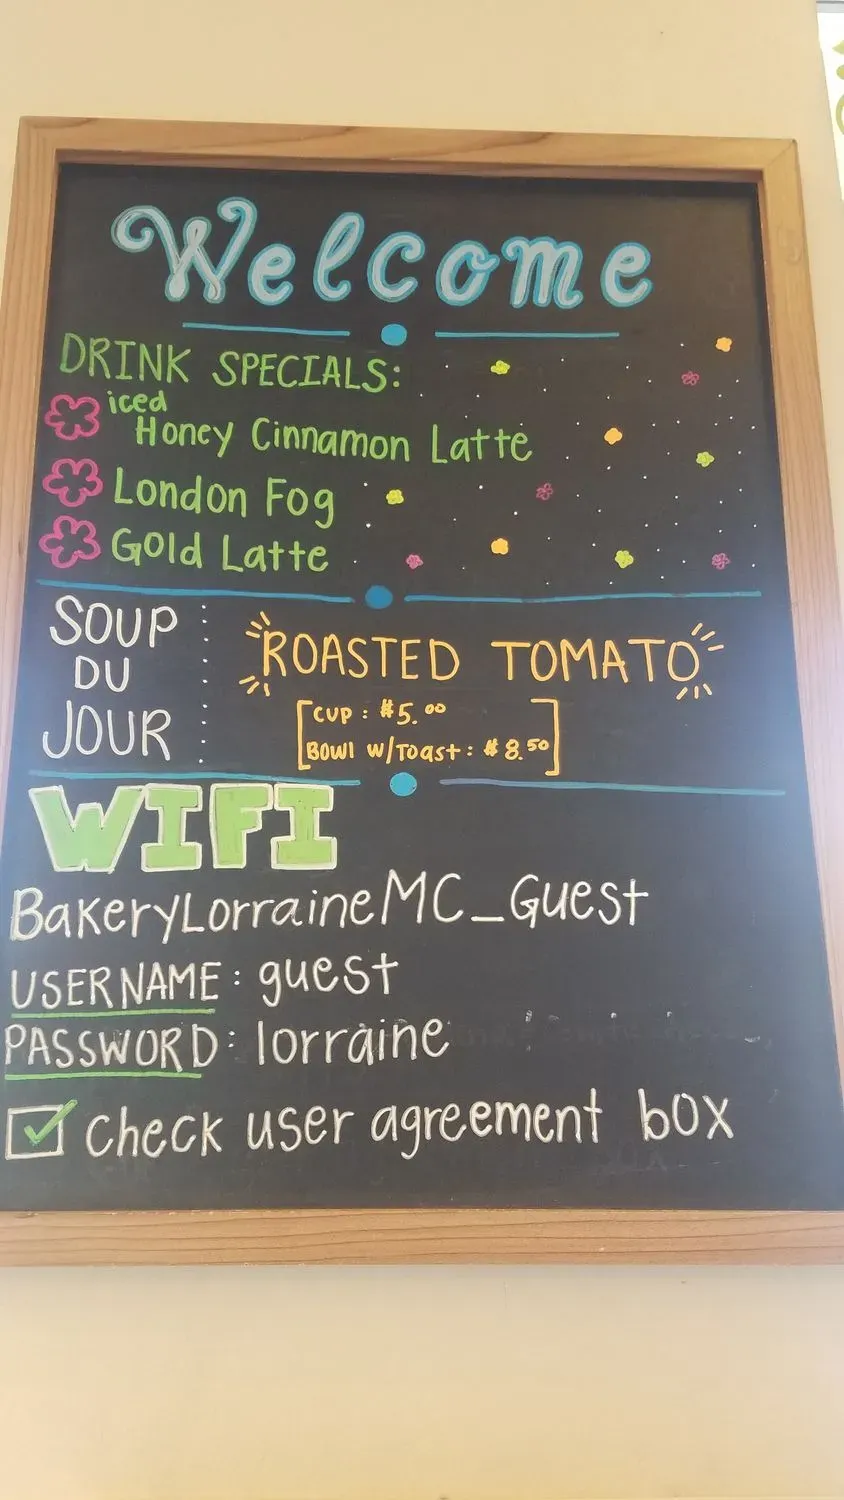 Welcome
DRINK SPECIALS:
iced
Honey Cinnamon Latte
London Fog
Gold Latte
SOUP
DU
JOUR
ROASTED TOMATO
CUP : $5.00
BOWl w/Toast : $8.50
WIFI
BakeryLorraineMC_Guest
USERNAME : guest
PASSWORD : lorraine
check user agreement box